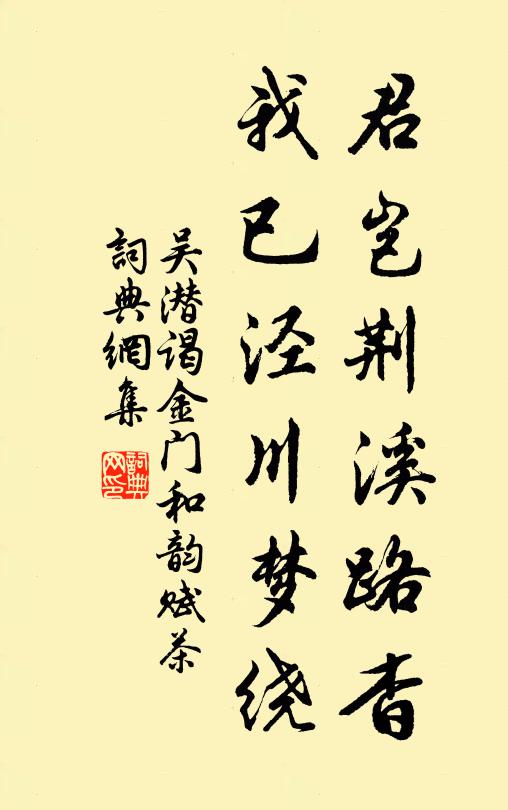 君岂荆溪路杳
我已泾川梦绕
吴潜谒金门和韵赋茶
詞典網集
詞典網印